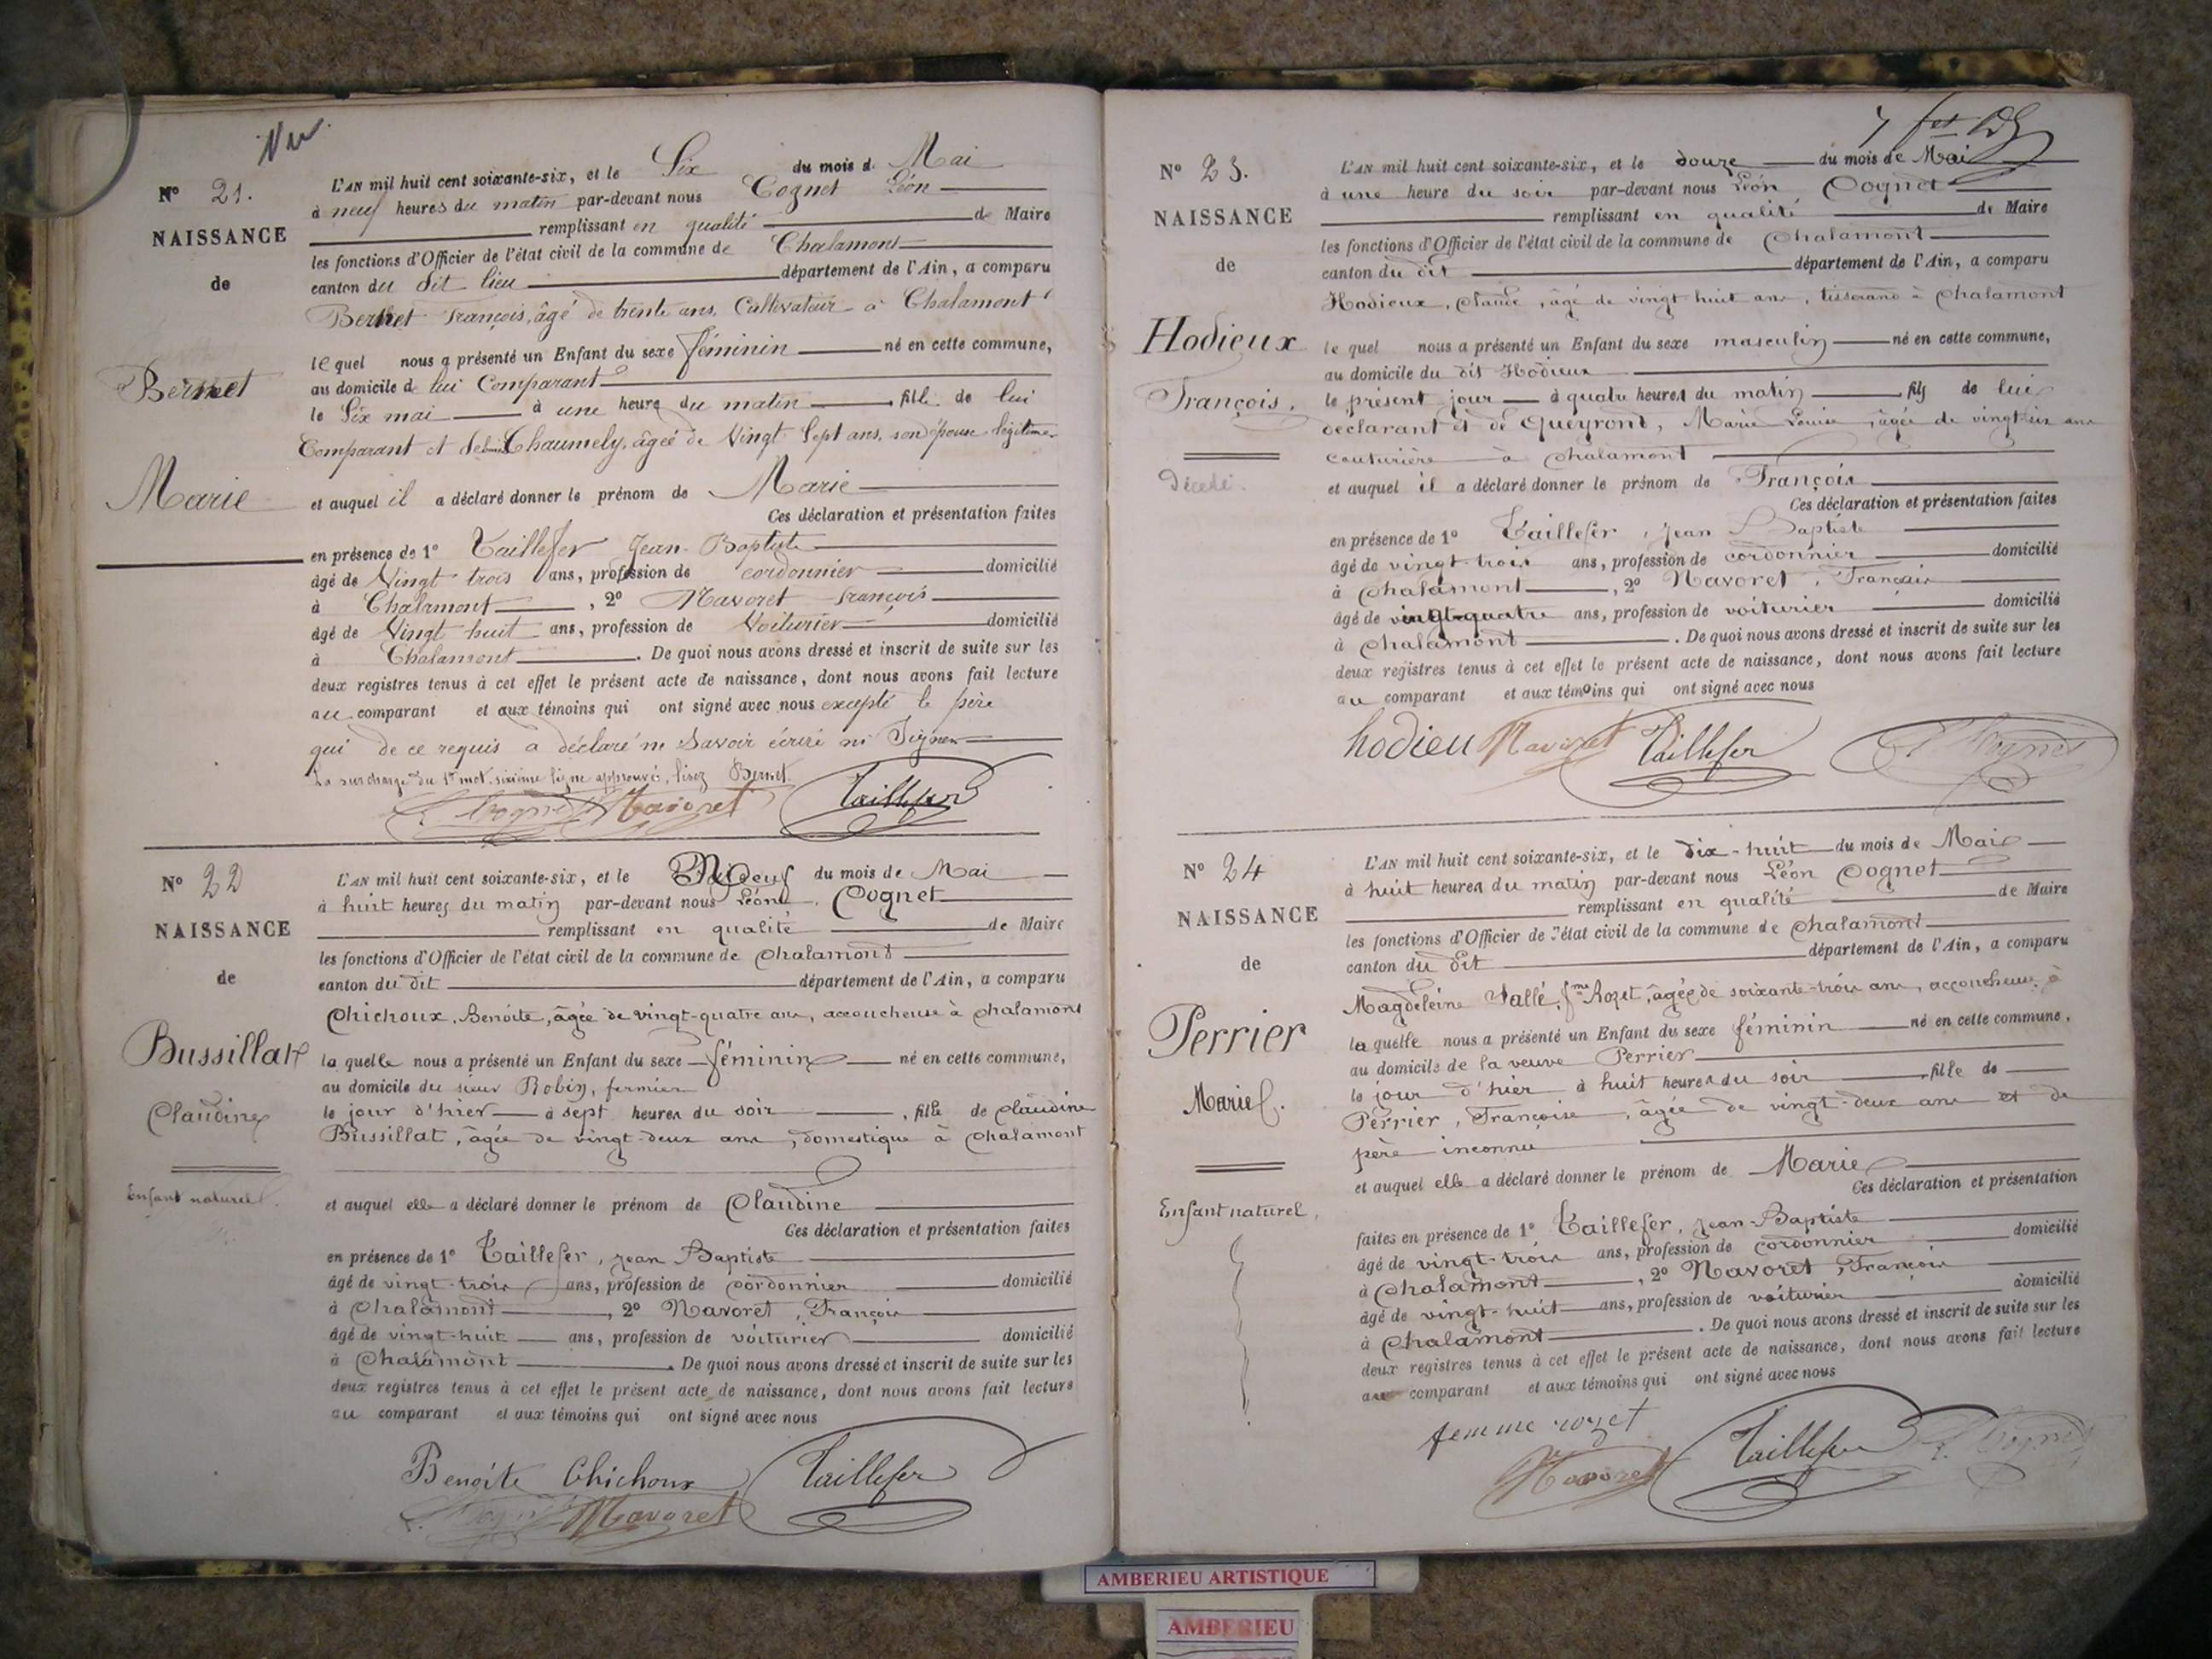 Vu
N° 21.
NAISSANCE
de
Bernet
Marie
L'AN mil huit cent soixante-six, et le Six du mois d. Mai
à neuf heures du matin par-devant nous Cognet Léon
remplissant en qualité de Maire
les fonctions d'Officier de l'état civil de la commune de Chalamont
canton du dit lieu département de l'Ain, a comparu
Bernet François, âgé de trente ans, Cultivateur à Chalamont
lequel nous a présenté un Enfant du sexe féminin né en cette commune,
au domicile de lui Comparant
le Six mai à une heure du matin fille de lui
Comparant et de Chaumely, âgée de Vingt Sept ans, son épouse légitime
et auquel il a déclaré donner le prénom de Marie
Ces déclaration et présentation faites
en présence de 1° Taillefer Jean-Baptiste
âgé de Vingt trois ans, profession de cordonnier domicilié
à Chalamont, 2° Navoret François
âgé de Vingt huit ans, profession de Voiturier domicilié
à Chalamont. De quoi nous avons dressé et inscrit de suite sur les
deux registres tenus à cet effet le présent acte de naissance, dont nous avons fait lecture
au comparant et aux témoins qui ont signé avec nous excepté le père
qui de ce requis a déclaré ne Savoir écrire ni Signer
La surcharge du 1er mot sixième ligne approuvé, lisez Bernet.
L. Cognet Navoret Taillefer
N° 22
NAISSANCE
de
Bussillat
Claudine
Enfant naturel.
L'AN mil huit cent soixante-six, et le Neuf du mois de Mai
à huit heures du matin par-devant nous Léon Cognet
remplissant en qualité de Maire
les fonctions d'Officier de l'état civil de la commune de Chalamont
canton du dit département de l'Ain, a comparu
Chichoux, Benoite, âgée de vingt-quatre ans, accoucheuse à Chalamont
la quelle nous a présenté un Enfant du sexe féminin né en cette commune,
au domicile du sieur Robin, fermier
le jour d'hier à sept heures du soir, fille de Claudine
Bussillat, âgée de vingt-deux ans, domestique à Chalamont
et auquel elle a déclaré donner le prénom de Claudine
Ces déclaration et présentation faites
en présence de 1° Taillefer, Jean Baptiste
âgé de vingt-trois ans, profession de cordonnier domicilié
à Chalamont, 2° Navoret, François
âgé de vingt-huit ans, profession de voiturier domicilié
à Chalamont. De quoi nous avons dressé et inscrit de suite sur les
deux registres tenus à cet effet le présent acte de naissance, dont nous avons fait lecture
au comparant et aux témoins qui ont signé avec nous
Benoite Chichoux Taillefer
L. Cognet Navoret
N° 23.
NAISSANCE
de
Hodieux
François.
Décédé.
L'AN mil huit cent soixante-six, et le douze du mois de Mai
à une heure du soir par-devant nous Léon Cognet
remplissant en qualité de Maire
les fonctions d'Officier de l'état civil de la commune de Chalamont
canton du dit département de l'Ain, a comparu
Hodieux, Claude, âgé de vingt huit ans, tisserand à Chalamont
le quel nous a présenté un Enfant du sexe masculin né en cette commune,
au domicile du dit Hodieux
le présent jour à quatre heures du matin fils de lui
déclarant et de Queyrond, Marie Louise, âgée de vingt-six ans
couturière à Chalamont
et auquel il a déclaré donner le prénom de François
Ces déclaration et présentation faites
en présence de 1° Taillefer, Jean Baptiste
âgé de vingt-trois ans, profession de cordonnier domicilié
à Chalamont, 2° Navoret, François
âgé de vingt-quatre ans, profession de voiturier domicilié
à Chalamont. De quoi nous avons dressé et inscrit de suite sur les
deux registres tenus à cet effet le présent acte de naissance, dont nous avons fait lecture
au comparant et aux témoins qui ont signé avec nous
hodieu Navoret Taillefer L. Cognet
N° 24
NAISSANCE
de
Perrier
Marie.
Enfant naturel,
L'AN mil huit cent soixante-six, et le dix-huit du mois de Mai
à huit heures du matin par-devant nous Léon Cognet
remplissant en qualité de Maire
les fonctions d'Officier de l'état civil de la commune de Chalamont
canton du dit département de l'Ain, a comparu
Magdeleine Vallé, fme Rozet, âgée de soixante-trois ans, accoucheuse à
la quelle nous a présenté un Enfant du sexe féminin né en cette commune,
au domicile de la veuve Perrier
le jour d'hier à huit heures du soir, fille de
Perrier, Françoise, âgée de vingt-deux ans et de
père inconnu
et auquel elle a déclaré donner le prénom de Marie
Ces déclaration et présentation
faites en présence de 1° Taillefer, Jean-Baptiste
âgé de vingt-trois ans, profession de cordonnier domicilié
à Chalamont, 2° Navoret, François
âgé de vingt-huit ans, profession de voiturier domicilié
à Chalamont. De quoi nous avons dressé et inscrit de suite sur les
deux registres tenus à cet effet le présent acte de naissance, dont nous avons fait lecture
au comparant et aux témoins qui ont signé avec nous
femme rozet
Navoret Taillefer L. Cognet
AMBERIEU ARTISTIQUE
AMBERIEU